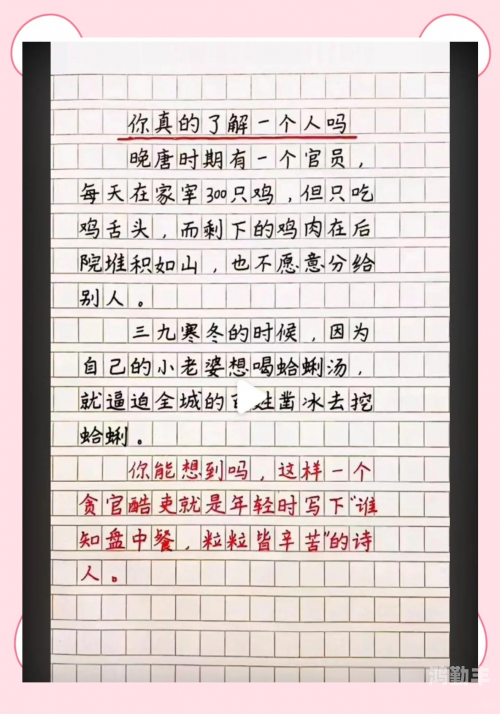 你真的了解一个人吗
晚唐时期有一个官员，
每天在家宰300只鸡，但只吃
鸡舌头，而剩下的鸡肉在后
院堆积如山，也不愿意分给
别人。
三九寒冬的时候，因为
自己的小老婆想喝蛤蜊汤，
就逼迫全城的百姓凿冰去挖
蛤蜊。
你能想到吗，这样一个
贪官酷吏就是年轻时写下“谁
知盘中餐，粒粒皆辛苦”的诗
人。
鸿勤丰